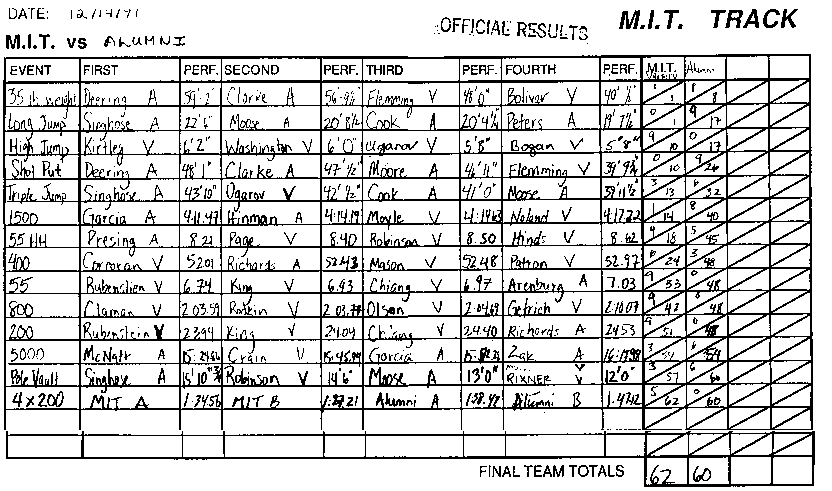 DATE: 12/14/91
OFFICIAL RESULTS
M.I.T. TRACK
M.I.T. vs ALUMNI
EVENT FIRST PERF. SECOND PERF. THIRD PERF. FOURTH PERF. M.I.T. Varsity Alumni
35 lb weight Deering A Clarke A Flemming V 48'0" Bolivar V 1 8
Long Jump Singhose A 22'6" Moose A 20'8½ Cook A 20'4¼ Peters A 19'7½" 0 1 9 17
High Jump Kirtley V 6'2" Washington V 6'0" Ugarov V 5'8" Bogan V 5'8" 9 10 0 17
Shot Put Deering A 48'1" Clarke A 47'½" Moore A Flemming V 0 10 9 26
Triple Jump Singhose A 43'10" Ugarov V 42'½" Cook A 41'0" Moose A 39'11½" 3 13 6 32
1500 Garcia A 4:11.47 Hinman A 4:14.19 Moyle V Noland V 4:17.22 1 14 8 40
55 HH Presing A 8.21 Page V 8.40 Robinson V 8.50 Hinds V 8.62 4 18 5 45
400 Corcoran V 52.01 Richards A 52.43 Mason V 52.48 Patron V 52.92 6 24 3 48
55 Rubenstien V 6.74 King V 6.93 Chiang V 6.97 Arenburg A 7.03 9 33 0 48
800 Claman V 2:03.59 Rankin V Olson V Getrich V 2:10.07 9 42 0 48
200 Rubenstein V 23.94 King V 24.09 Chiang V 24.40 Richards A 24.53 9 51 0 48
5000 McNatt A Crain V Garcia A Zak A 3 54 6 54
Pole Vault Singhose A 15'10" Robinson V 14'6" Moose A 13'0" RIXNER V 12'0" 3 57 6 60
4x200 MIT A 1:34.56 MIT B Alumni A Alumni B 5 62 0 60
FINAL TEAM TOTALS 62 60